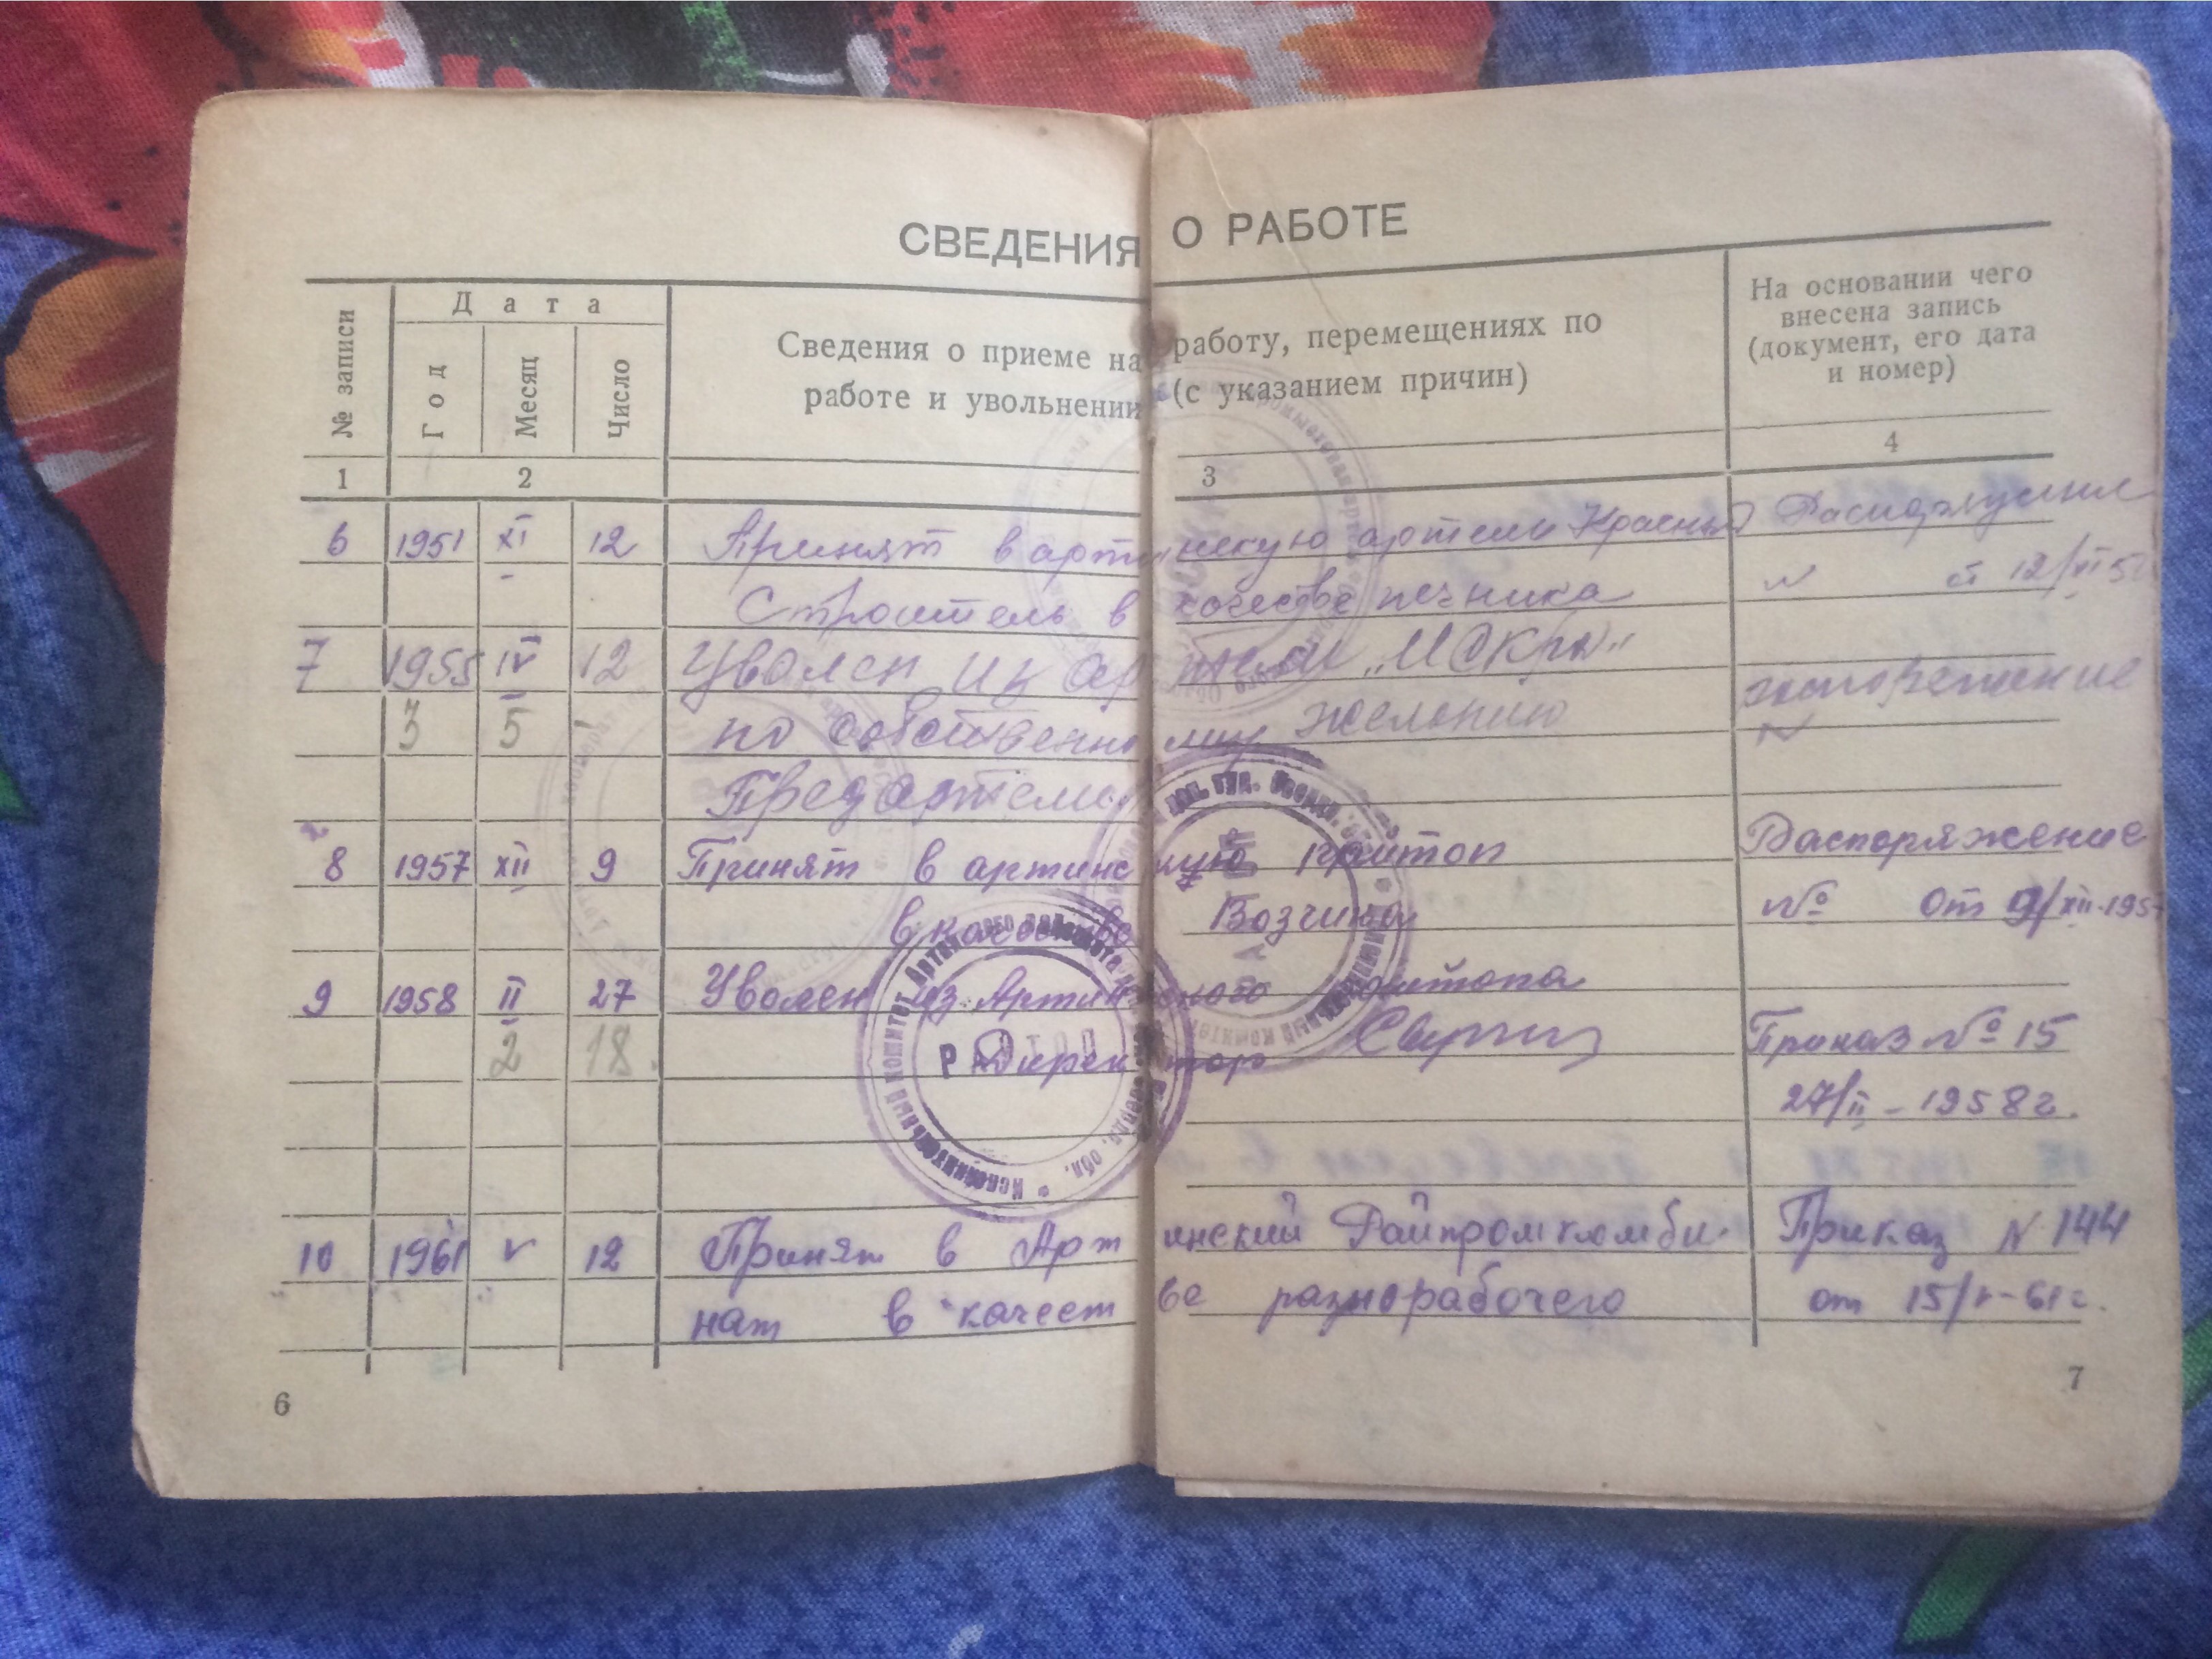 СВЕДЕНИЯ О РАБОТЕ
№ записи
Дата
Год
Месяц
Число
Сведения о приеме на работу, перемещениях по
работе и увольнении (с указанием причин)
На основании чего
внесена запись
(документ, его дата
и номер)
1 2 3 4
6 1951 XI 12 Принят в артинскую артели Красный
Строитель в качестве печника 12/XI 51
7 1955 IV 12 Уволен из артели „Искра"
3 5 1 по собственному желанию
Пред артели
8 1957 XII 9 Принят в артинскую райтоп Распоряжение
в качестве Возчика № от 9/XII-1957
9 1958 II 27 Уволен из Артинского райтопа
2 18. Директор Приказ № 15
27/II - 1958 г.
РАЙТОП
10 1961 V 12 Принят в Артинский Райпромкомби- Приказ N 144
нат в качестве разнорабочего от 15/V-61 г.
6
7